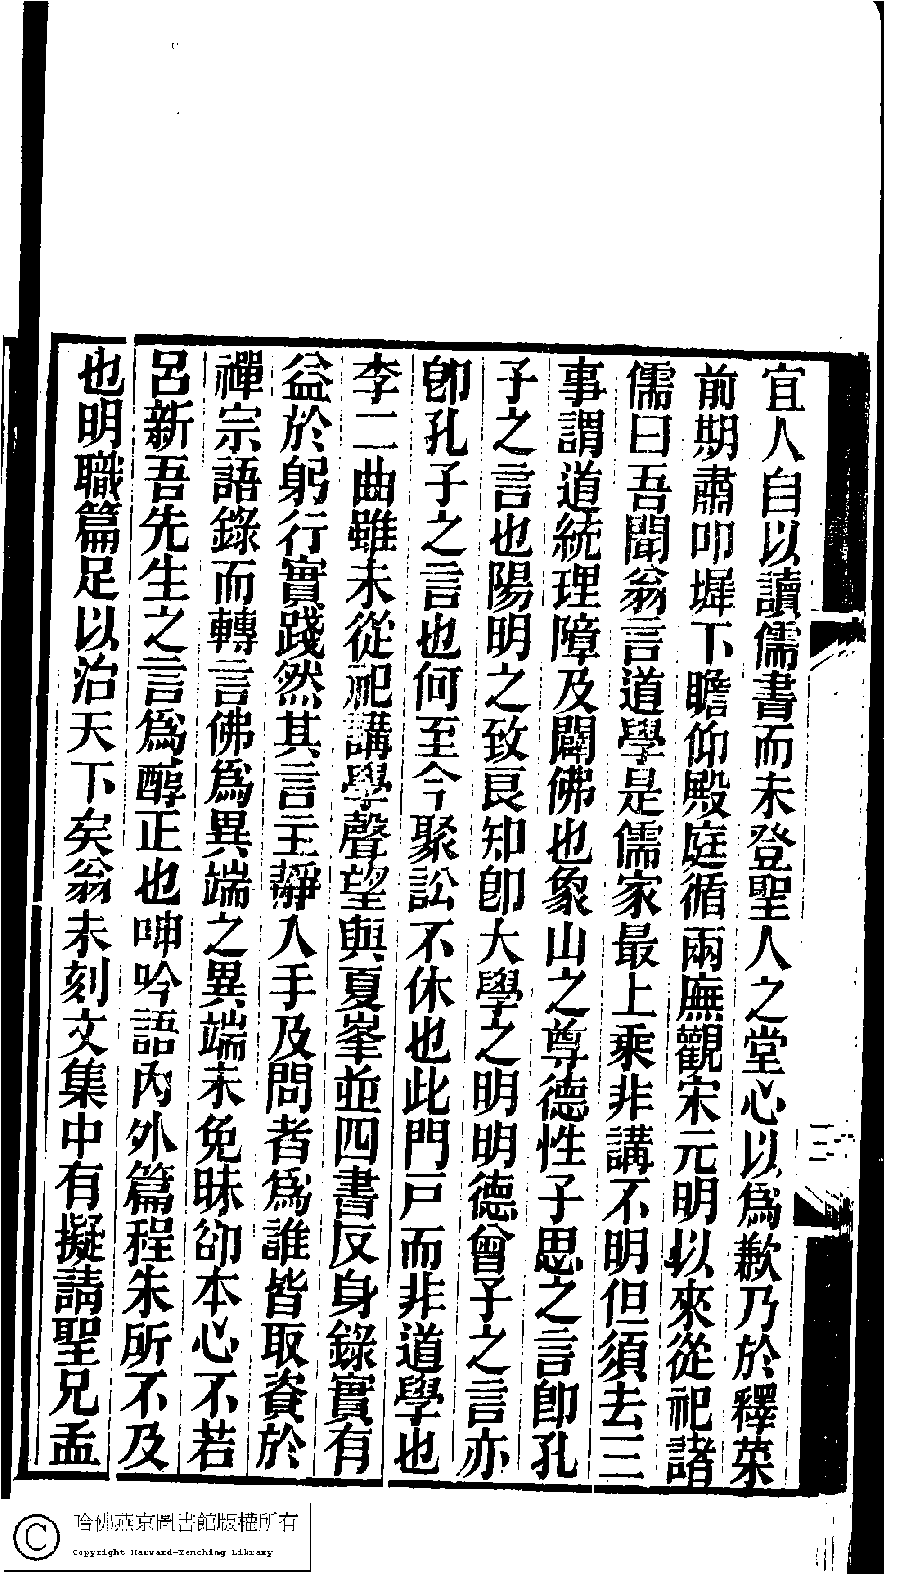 宜人自以讀儒書而未登聖人之堂心以爲歉乃於釋菜
前期肅叩墀下瞻仰殿庭循兩廡觀宋元明以來從祀諸
儒曰吾聞翁言道學是儒家最上乘非講不明但須去三
事謂道統理障及闢佛也象山之尊德性子思之言卽孔
子之言也陽明之致良知卽大學之明明德曾子之言亦
卽孔子之言也何至今聚訟不休也此門戸而非道學也
李二曲雖未從祀講學聲望與夏峯並四書反身錄實有
益於躬行實踐然其言主靜入手及問者爲誰皆取資於
禪宗語錄而轉言佛爲異端之異端未免昧卻本心不若
呂新吾先生之言爲醇正也呻吟語內外篇程朱所不及
也明職篇足以治天下矣翁未刻文集中有擬請聖兄孟
三
哈佛燕京圖書館版權所有
Copyright Harvard-Yenching Library